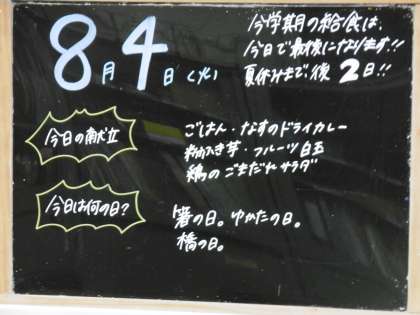 8月4日(火)
今学期の給食は、
今日で最後になります!!
夏休みまで後2日!!
今日の献立
ごはん・なすのドライカレー
粉ふき芋・フルーツ白玉
鶏のごまだれサラダ
今日は何の日?
箸の日。ゆかたの日。
橋の日。